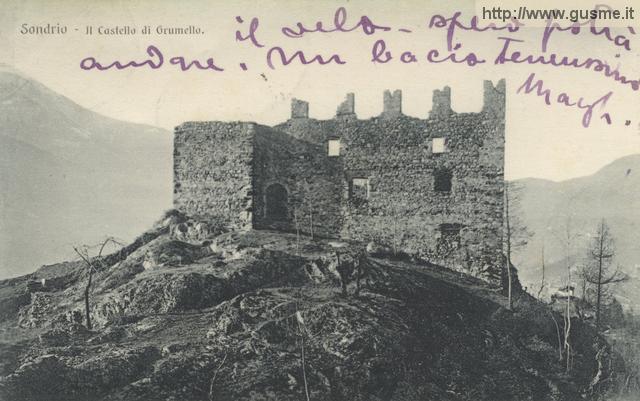 http://www.gusme.it/
Sondrio - Il Castello di Grumello.
il velo - spero potrà
andare. Un bacio Tenerissimo